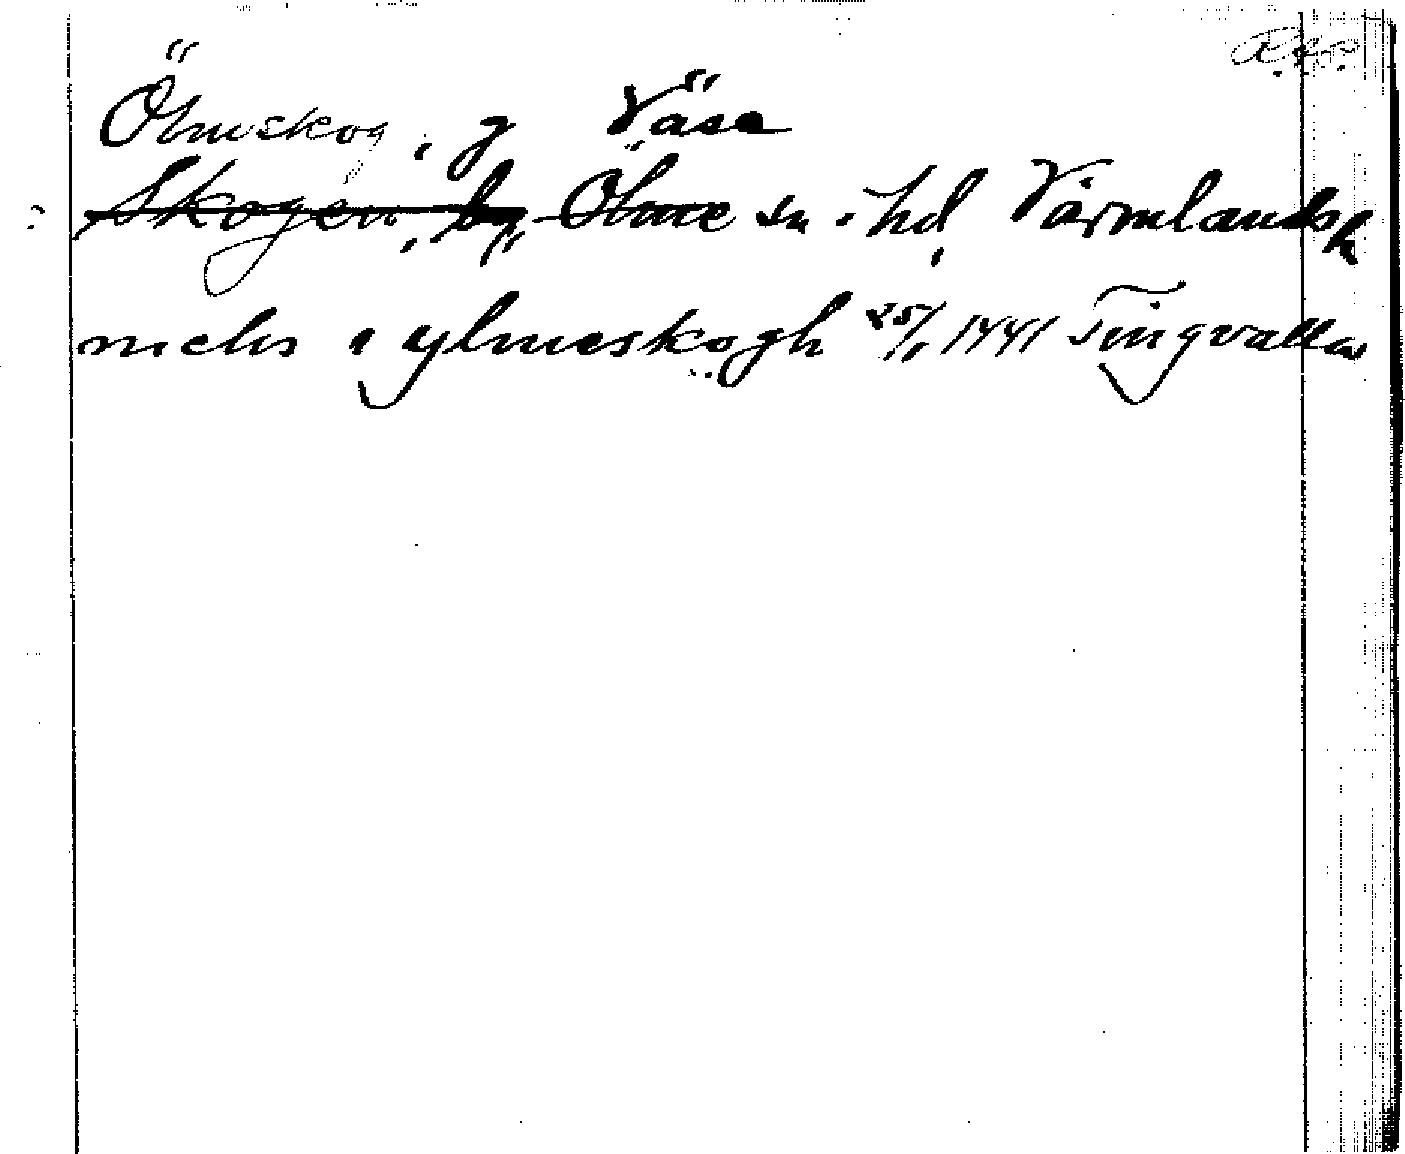 Ölmskog, g Väse
Skogen, by, Ölme sn o. hd, Värmlands l
niclis i ylmeskogh 25/11 1441 Tingvalla